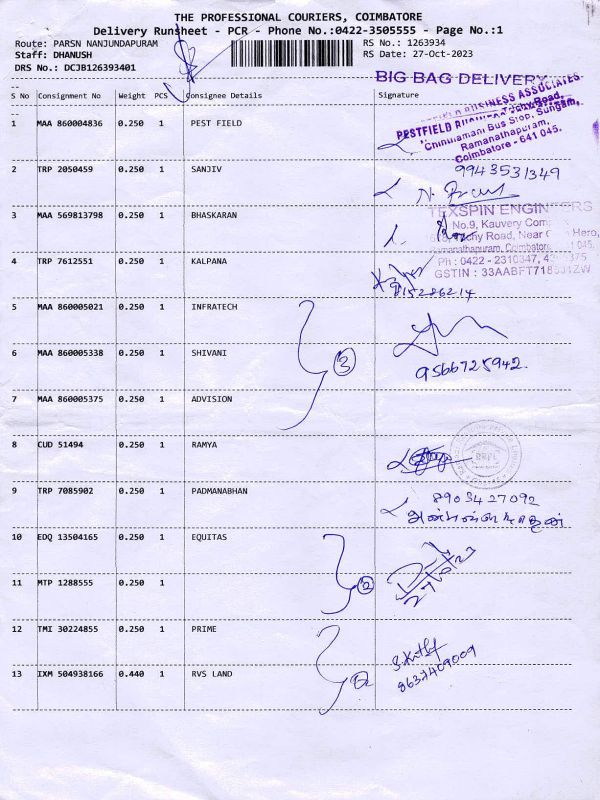 THE PROFESSIONAL COURIERS, COIMBATORE
Delivery Runsheet - PCR - Phone No.:0422-3505555 - Page No.:1
Route: PARSN NANJUNDAPURAM RS No.: 1263934
Staff: DHANUSH RS Date: 27-Oct-2023
DRS No.: DCJB126393401
BIG BAG DELIVERY
S No Consignment No Weight PCS Consignee Details Signature
1 MAA 860004836 0.250 1 PEST FIELD
PESTFIELD BUSINESS ASSOCIATES.
Trichy Road,
Chinthamani Bus Stop, Sungam,
Ramanathapuram,
Coimbatore - 641 045.
2 TRP 2050459 0.250 1 SANJIV 9943531349
3 MAA 569813798 0.250 1 BHASKARAN
TEXSPIN ENGINEERS
No.9, Kauvery
Trichy Road, Near Hero,
Ramanathapuram, Coimbatore 045.
Ph : 0422 - 2310347,
GSTIN : 33AABFT718
4 TRP 7612551 0.250 1 KALPANA
5 MAA 860005021 0.250 1 INFRATECH
6 MAA 860005338 0.250 1 SHIVANI 3 9566725942.
7 MAA 860005375 0.250 1 ADVISION
8 CUD 51494 0.250 1 RAMYA
9 TRP 7085902 0.250 1 PADMANABHAN 8903427092
10 EDQ 13504165 0.250 1 EQUITAS
27/10/23
11 MTP 1288555 0.250 1 2
12 TMI 30224855 0.250 1 PRIME
13 IXM 504938166 0.440 1 RVS LAND 2 8637409009